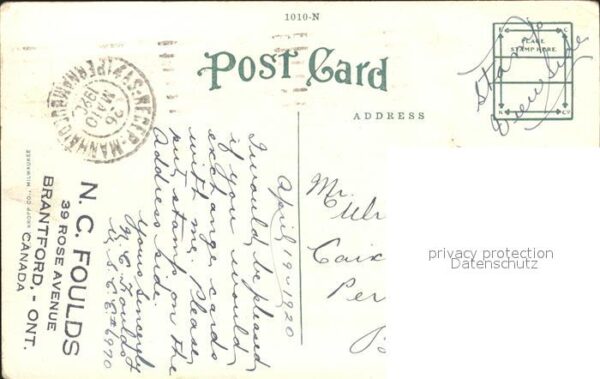 1010-N
POST CARD
PLACE
STAMP HERE
Stamp
View side
ADDRESS
26
MAIO
1920
(PERNAMBUCO)
April 19-1920
I would be pleased
if you would
exchange cards
with me. Please
put stamp on the
Address side.
Yours Sincerely
N. C. Foulds
N. C. FOULDS
39 ROSE AVENUE
BRANTFORD, - ONT.
CANADA
Mr.
Caix
Per
privacy protection
Datenschutz